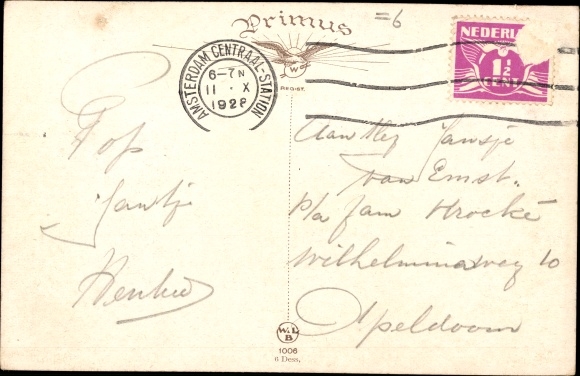 Primus
=6
AMSTERDAM CENTRAAL-STATION
6-7N
11 · X
1928
NEDERL
1½
CENT
W
REGIST.
Pop
Jantje
Aan Mej Jansje
van Emst.
p/a fam Krocké
Wilhelminaweg 10
Apeldoorn
W.L.
B
1006
6 Dess.